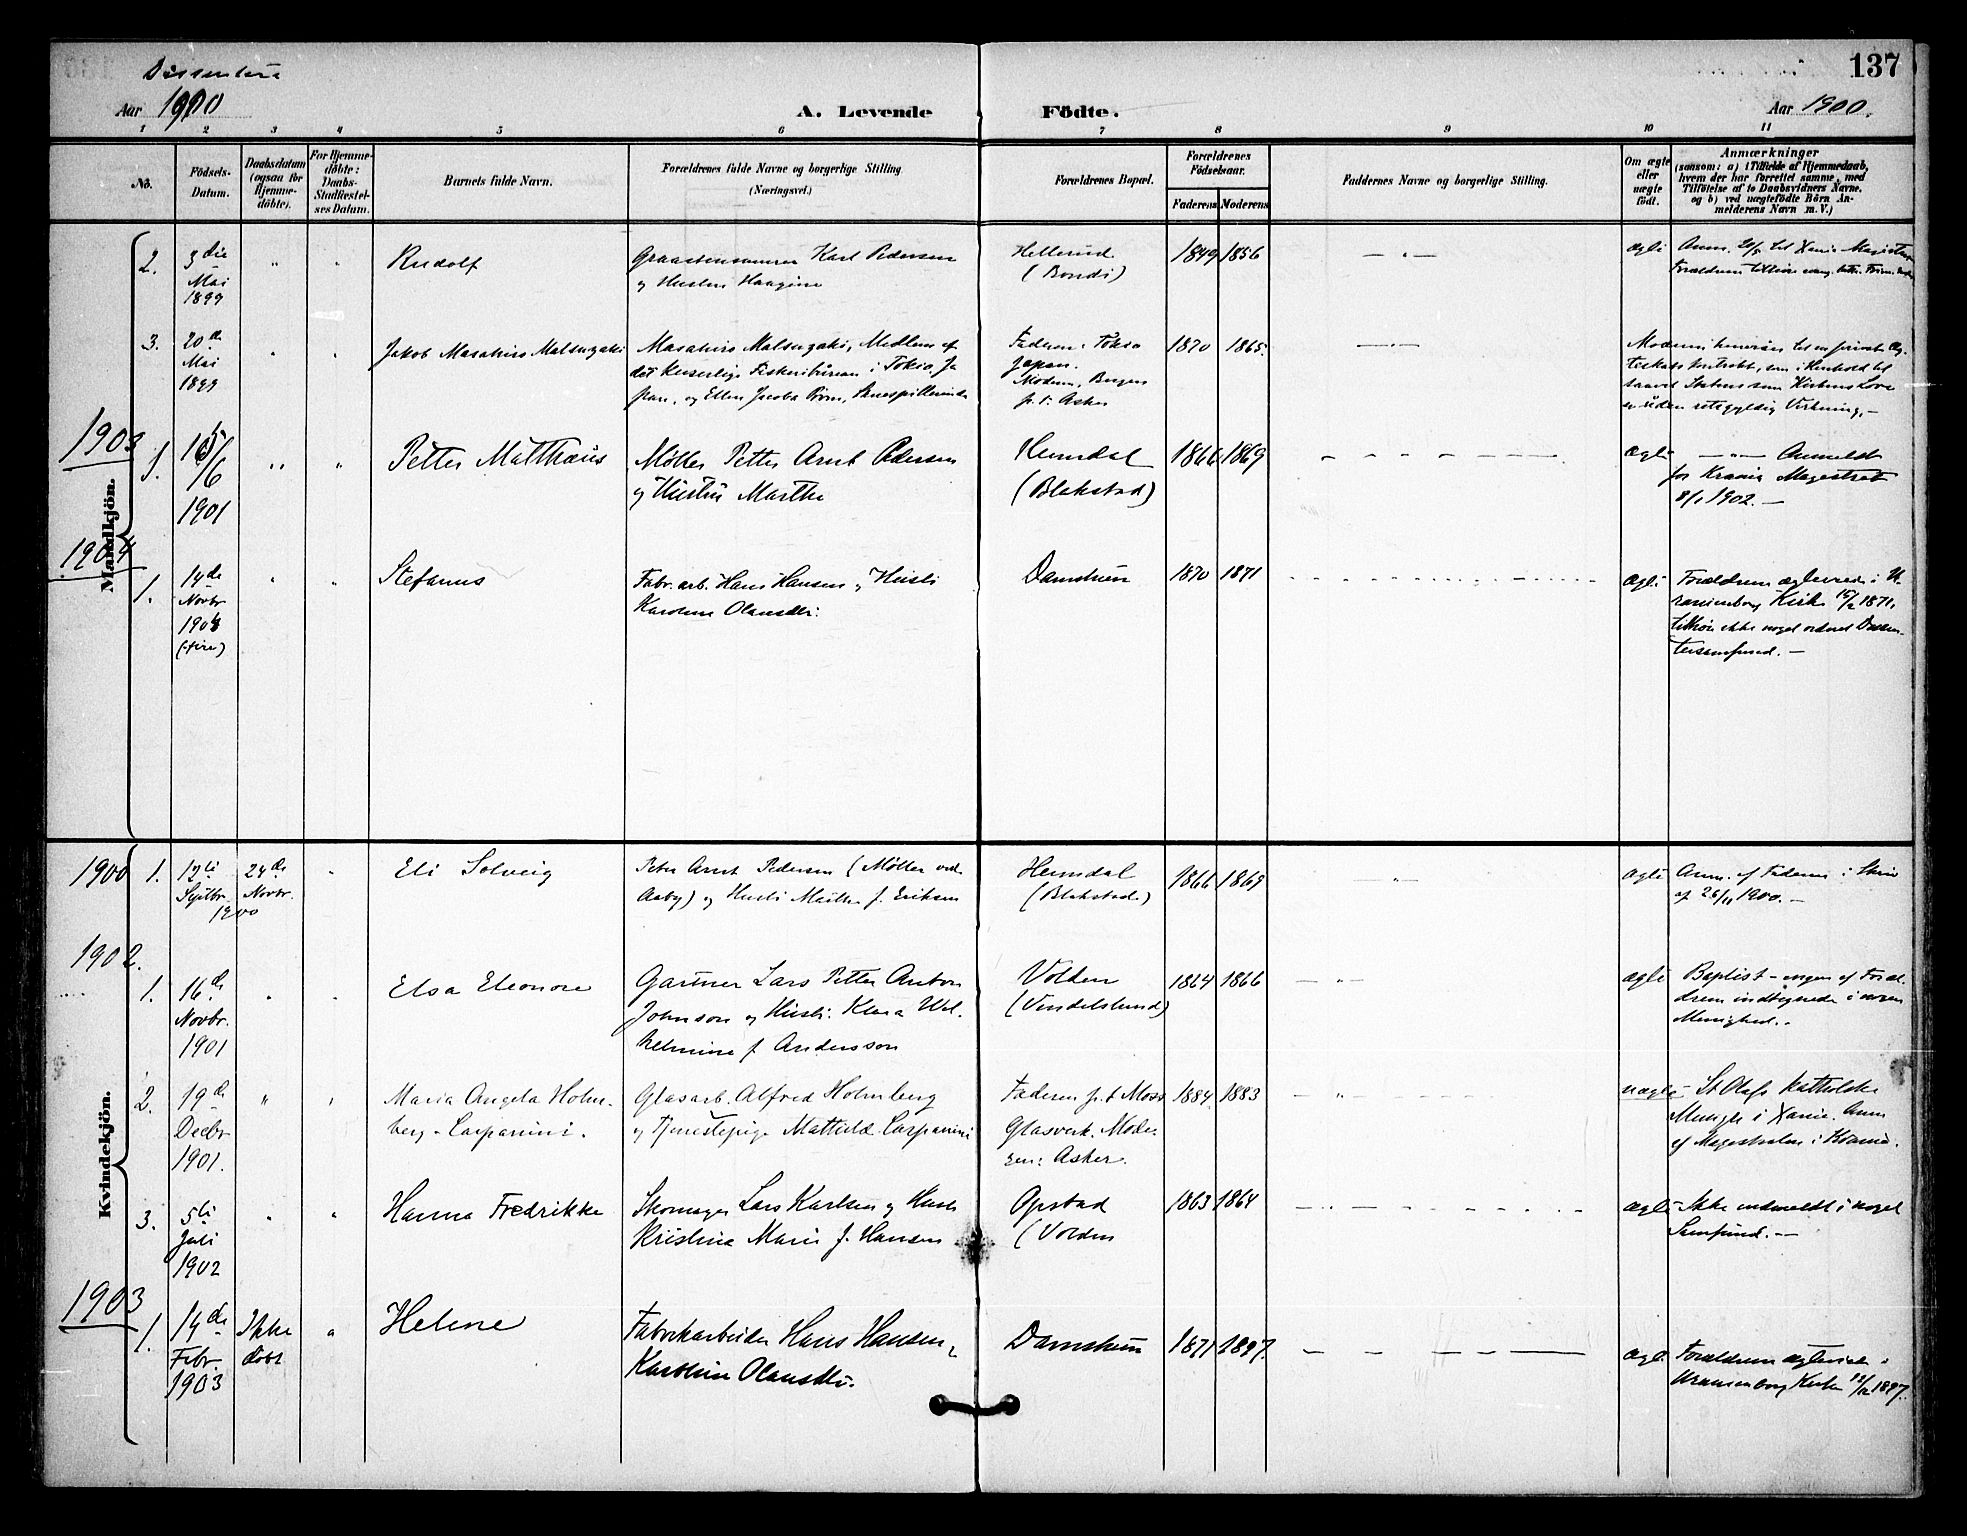 137
Aar 1900
A. Levende Födte.
Aar 1900.
1 2 3 4 5 6 7 8 9 10 11
No.
Födsels-
Datum.
Daabsdatum
(ogsaa for
Hjemme-
döbte).
For Hjemme-
döbte:
Daabs-
Stadfæstel-
ses Datum.
Barnets fulde Navn.
Forældrenes fulde Navne og borgerlige Stilling
(Næringsvei.)
Forældrenes Bopæl.
Forældrenes
Födselsaar.
Faderens Moderens
Faddernes Navne og borgerlige Stilling.
Om ægte
eller
uægte
födt.
Anmærkninger
(saasom: a) i Tilfælde af Hjemmedaab,
hvem der har forrettet samme, med
Tilföielse af to Daabsvidners Navne.
og b) ved uægtefödte Börn An-
melderens Navn m. V.)
Mandkjön.
2.
3die
Mai
1899
Rudolf
Karl Pedersen
Hellerud
(Bondi)
1849 1856
ægte
3.
20de
Mai
1899
Jakob Masahiro Matsuzaki
Masahiro Matsuzaki, Medlem af
det Keiserlige Fiskeribureau i Tokio, Ja-
pan, og Ellen Jacoba
Faderen: Tokio
Japan.
Moderen, Bergen
p. t. Asker
1870 1865.
uden retsgyldig Virkning. –
1903
1.
1901
Petter Matthæus
Möller Petter Arnt Pedersen
og Hustru Marthe
Hemdal
(Blakstad)
1866 1869
ægte
Anmeldt
for Krania Magistrat
8/1 1902. –
1904
1.
14de
Novbr
1904
(fire)
Stefanus
Fabr. arb. Hans Hansen og Hustr.
Karoline Olausdtr.
Damshum
1870 1871
ægte
Forældrene ægteviede i U-
ranienborg Kirke 1871,
tilhör ikke noget ordnet Dissen-
tersamfund. –
Kvindekjön.
1900
1.
Septbr.
1900
24de
Novbr.
Eli Solveig
Peter Arnt Pedersen (Möller ved
Aaby) og Hustr. Marthe f. Eriksen
Hemdal
(Blakstad)
1866 1869
ægte
Anm. af Faderen i Skriv
af 26/11 1900. –
1902.
1.
16de
Novbr.
1901
Elsa Eleonore
Gartner Lars Petter Anton
Johnson og Hustr. Klara Wil-
helmine f. Andersson
Volden
(Vendelslund)
1864 1866
ægte
Baptist – ingen af Foræl-
drene indtegnede i noen
Menighed.
2.
19de
Decbr
1901.
Maria Angela Holm-
berg – Casparini.
Glasarb. Alfred Holmberg
og Tjenestepige Mathilde Casparini
Faderen p. t. Moss
Glasverk. Mode-
ren: Asker.
1884 1883
uægte
St. Olafs katholske
Menigh. i Xania. Anm
af Magistraten i Krania.
3.
5te
Juli
1902
Hanna Fredrikke
Skomager Lars Karlsen og Hustr
Kristina Marie f. Hansen
Opstad
(Volden
1863 1864
ægte
Ikke indmeldt i noget
Samfund. –
1903
1.
14de
Febr.
1903
Ikke
döbt
Helene
Fabrikarbeider Hans Hansen,
Karoline Olausdtr.
Damshum
1871 1897.
ægte
Forældrene ægteviet i
Uranienborg Kirke 1897.